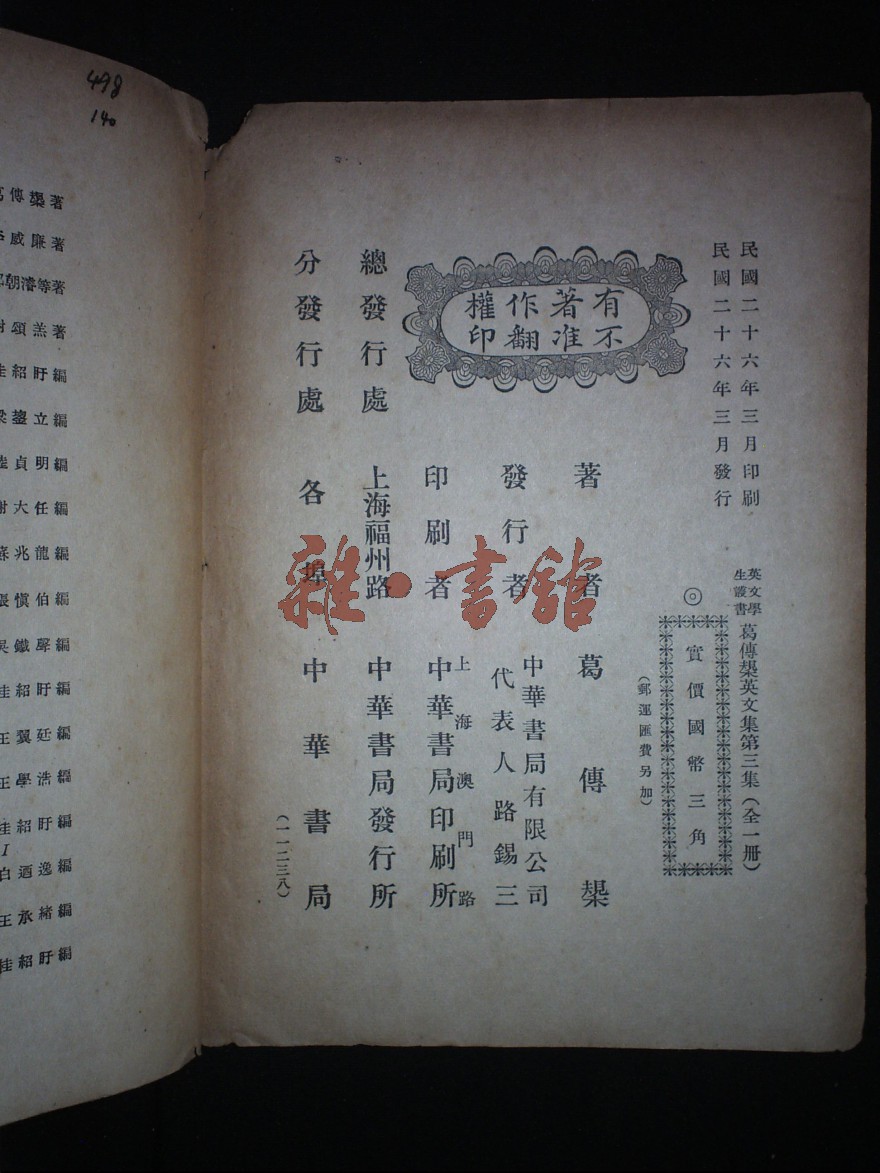 民國二十六年三月印刷
民國二十六年三月發行
英文學
生叢書
葛傳槼英文集第三集(全一冊)
◎
實價國幣三角
(郵運匯費另加)
有著作權
不准翻印
著者 葛傳槼
發行者 中華書局有限公司
代表人路錫三
印刷者 上海澳門路
中華書局印刷所
總發行處 上海福州路 中華書局發行所
分發行處 各埠 中華書局
(一一二三八)
雜·書館
498
140
傳槼著
威廉著
朝濬等著
頌羔著
桂紹盱編
立編
陸貞明編
謝大任編
蘇兆龍編
張慎伯編
吳鐵聲編
桂紹盱編
王翼廷編
王學浩編
桂紹盱編
1
白酒逸編
王承緒編
桂紹盱編